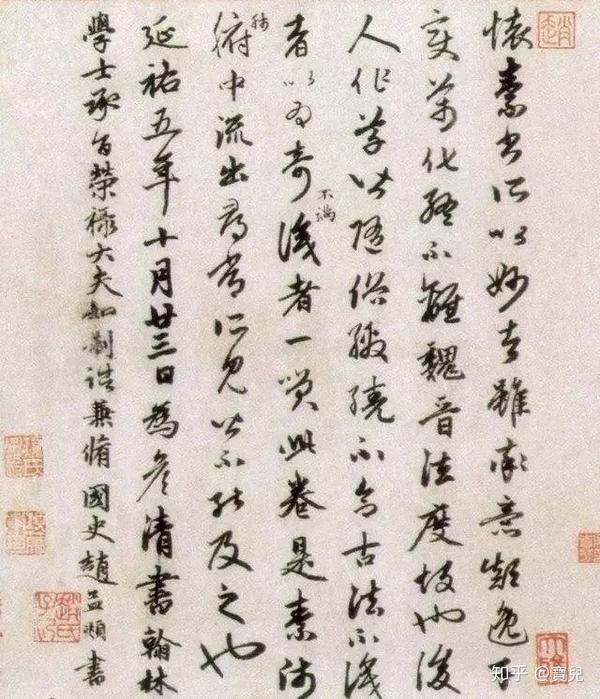 懷素書所以妙者雖率意顛逸千
變萬化終不離魏晉法度故也後
人作草皆隨俗繳繞不合古法不識
者以為奇不滿識者一笑此卷是素師
肺腑中流出尋常所見皆不能及之也
延祐五年十月廿三日為彥清書翰林
學士承旨榮祿大夫知制誥兼脩國史趙孟頫書
趙氏子昂
知乎 @寶兒